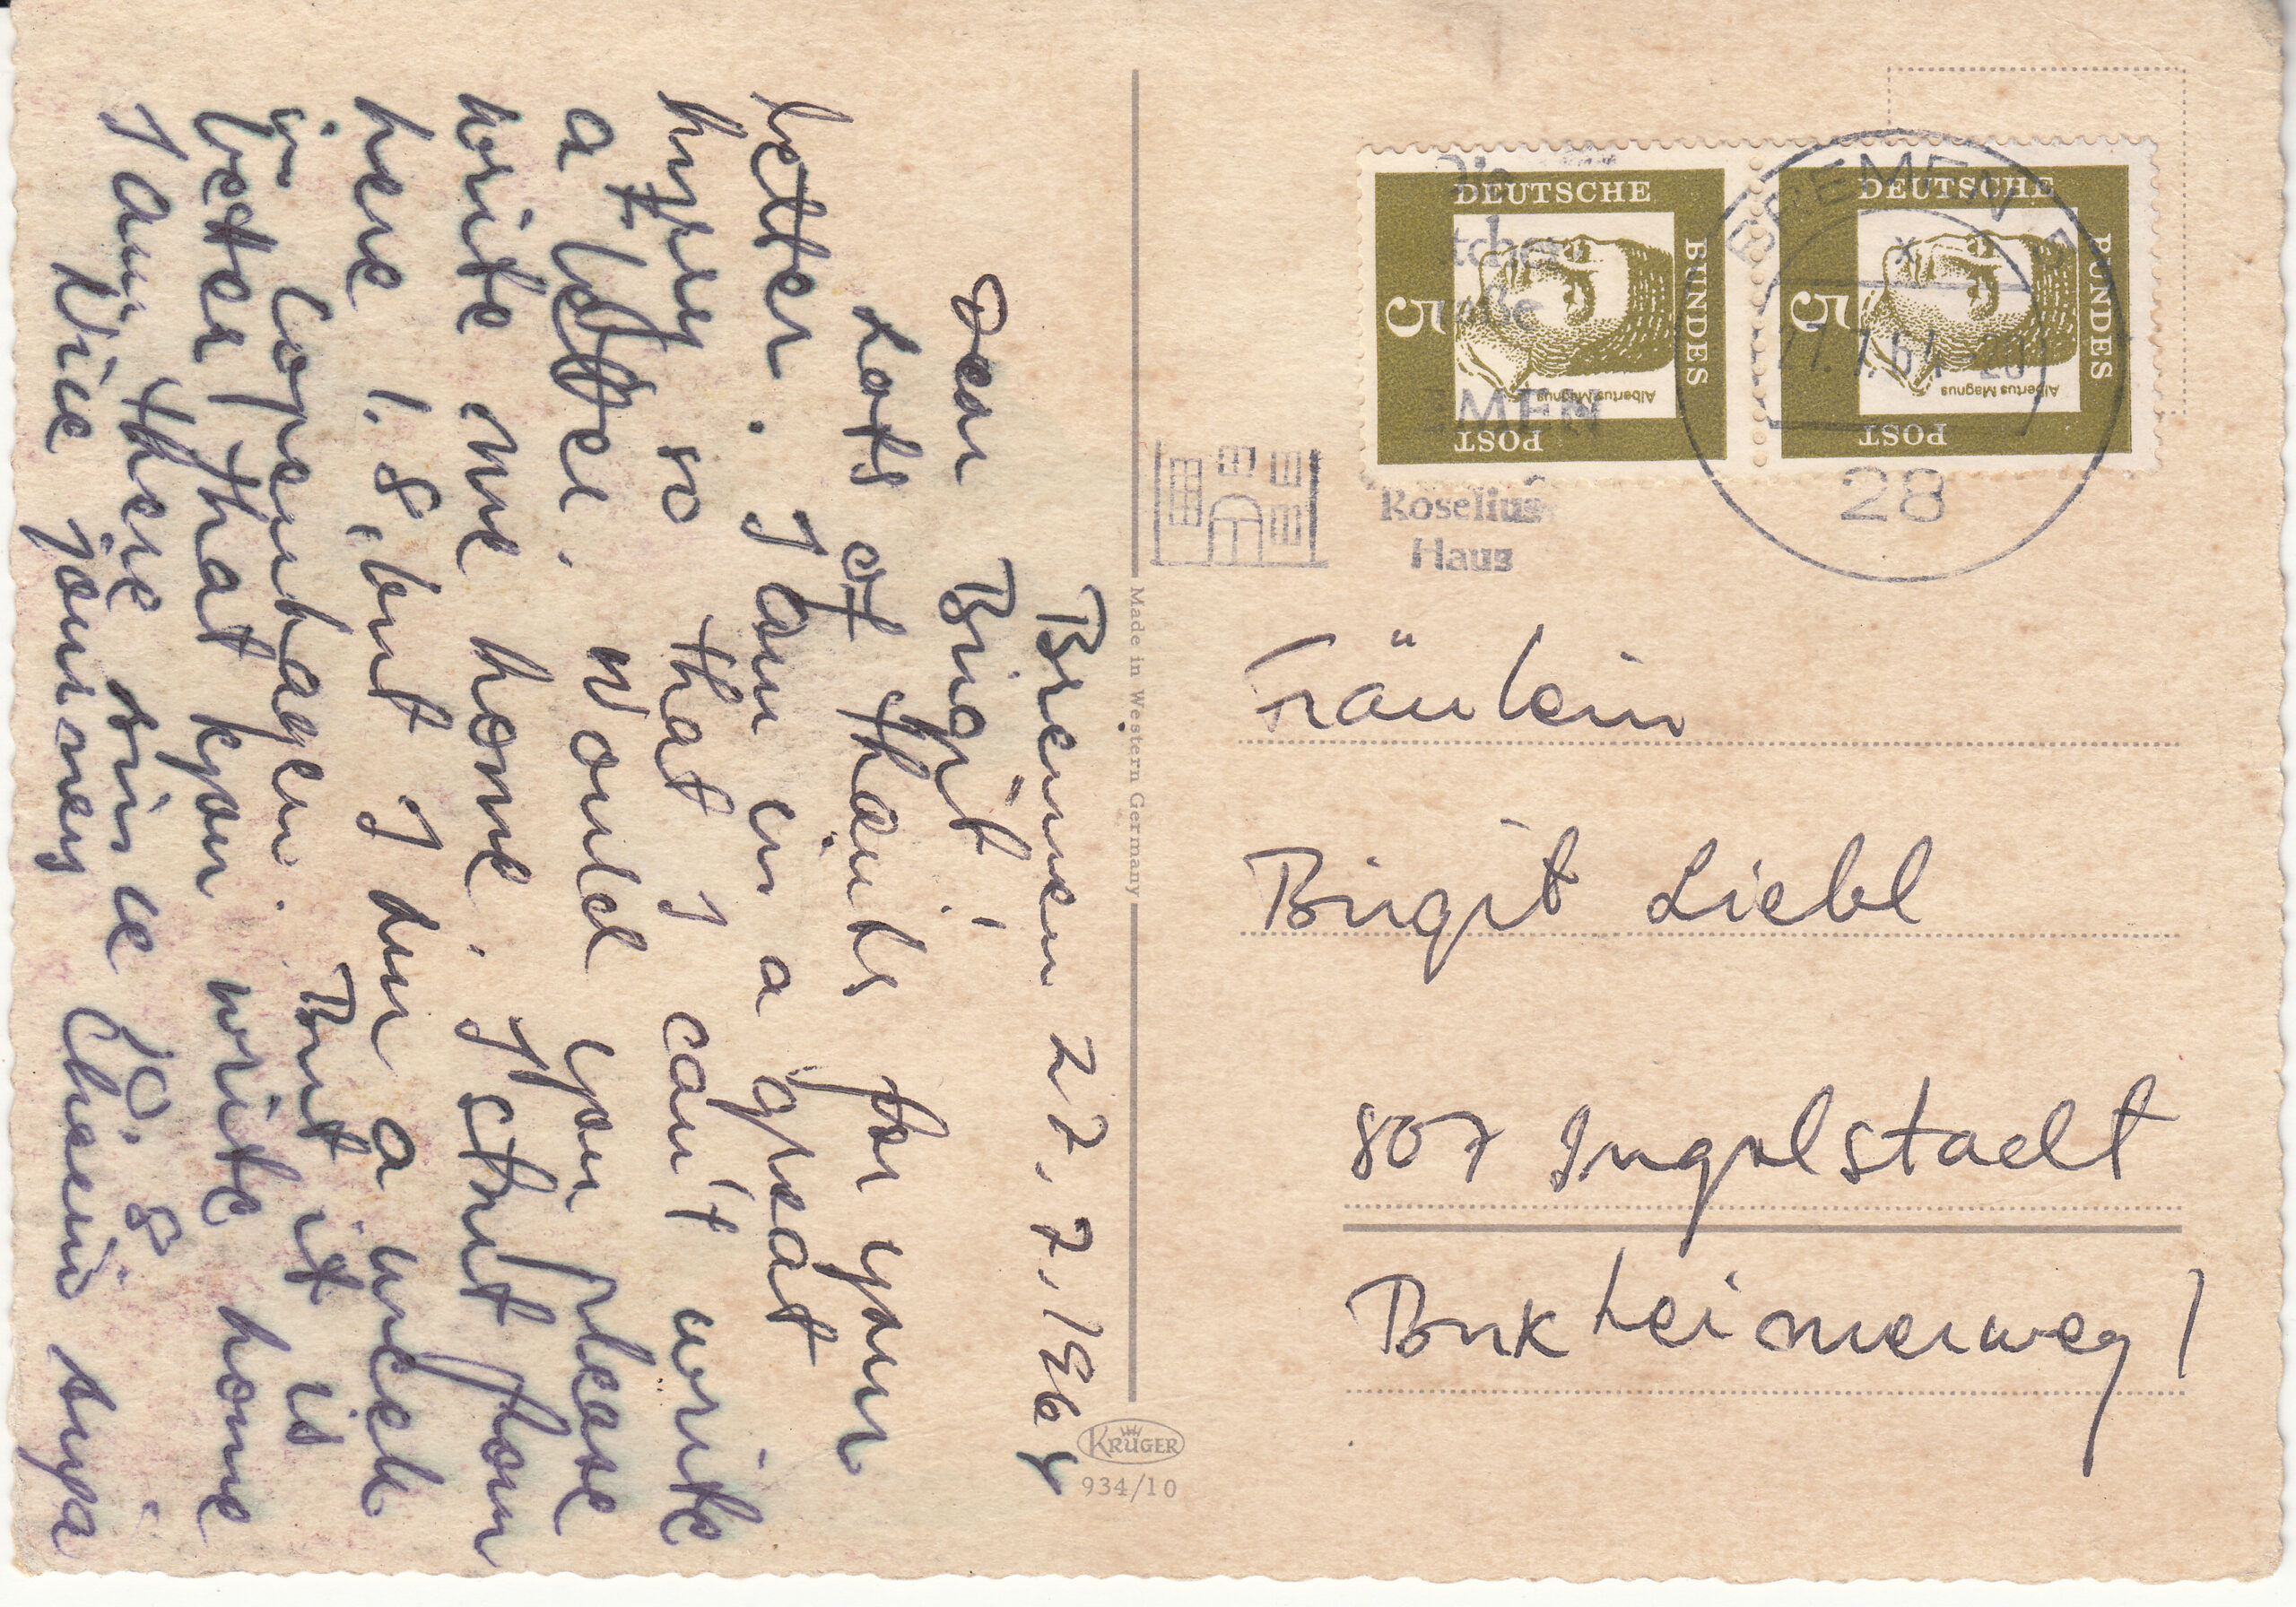 Bremen 27.7.1964
Dear Birgit!
Lots of thanks for your
letter. I am in a great
hurry so that I can't write
a letter. Would you please
write me home. I start from
here 1.8, but I am a week
in Copenhagen. But it is
better that you write home
I am there since 10.8.
Nice journey
Made in Western Germany
KRÜGER
934/10
DEUTSCHE
BUNDES
POST
5
Albertus Magnus
DEUTSCHE
BUNDES
POST
5
Albertus Magnus
BREMEN
28
Roselius
Haus
Fräulein
Birgit Liebl
807 Ingolstadt
Buxheimerweg 1